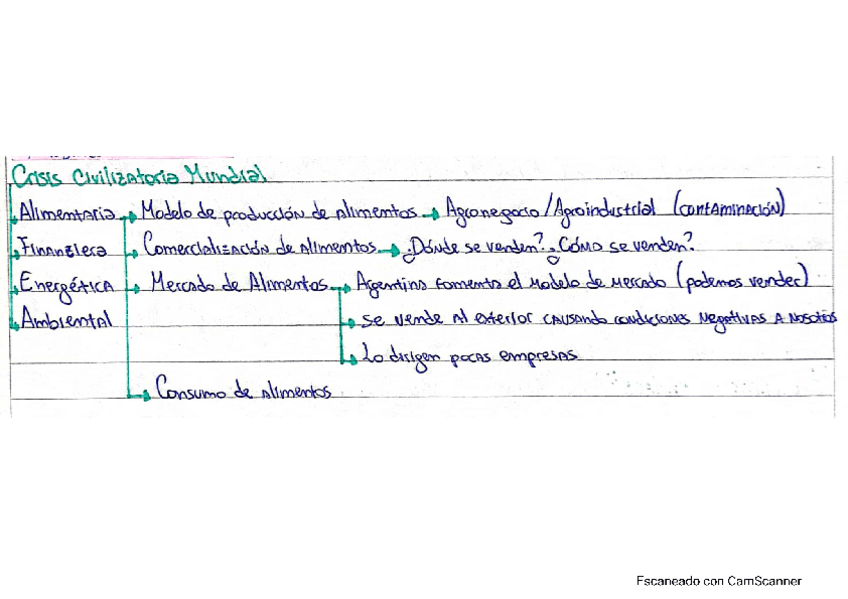 Crisis Civilizatoria Mundial
Alimentaria → Modelo de producción de alimentos → Agronegocio/Agroindustrial (contaminación)
Financiera Comercialización de alimentos → ¿Dónde se venden? ¿Cómo se venden?
Energética Mercado de Alimentos → Argentina fomenta el modelo de mercado (podemos vender)
Ambiental se vende al exterior causando condiciones negativas a nosotros
Lo dirigen pocas empresas
Consumo de alimentos
Escaneado con CamScanner